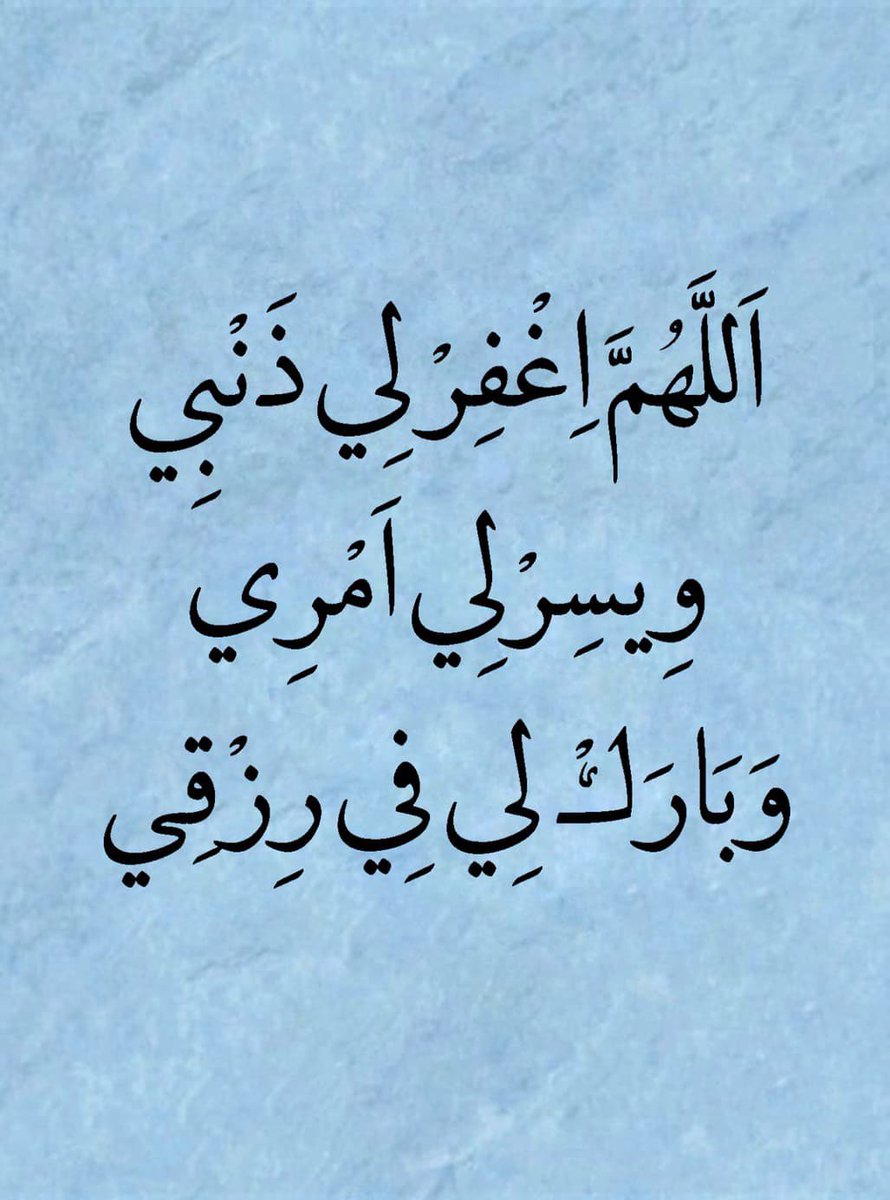 اَللَّهُمَّ اِغْفِرْ لِي ذَنْبِي
وِيسِرْ لِي اَمْرِي
وَبَارَكْ لِي فِي رِزْقِي